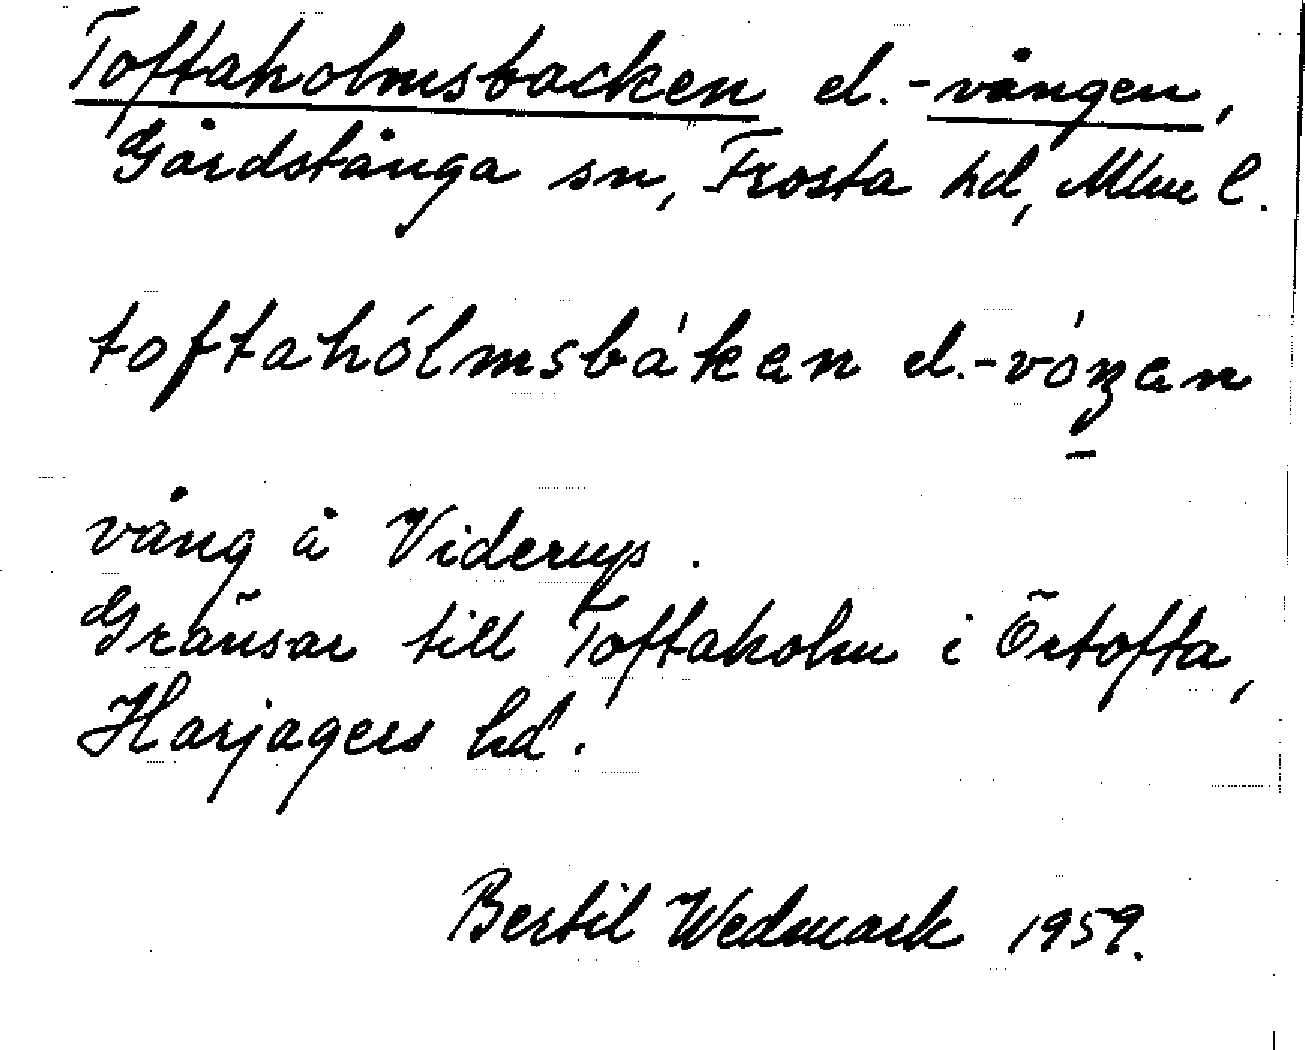 Toftaholmsbacken el.-vången,
Gårdstånga sn, Frosta hd, Mlm l.
toftahólmsbákan el.-vóŋan
vång å Viderup.
Gränsar till Toftaholm i Örtofta,
Harjagers hd.
Bertil Wedmark 1959.